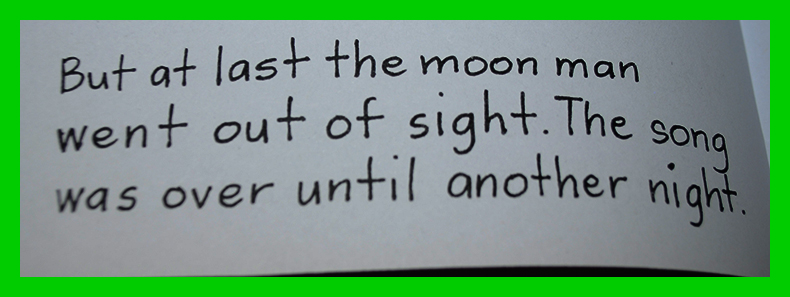 But at last the moon man
went out of sight. The song
was over until another night.